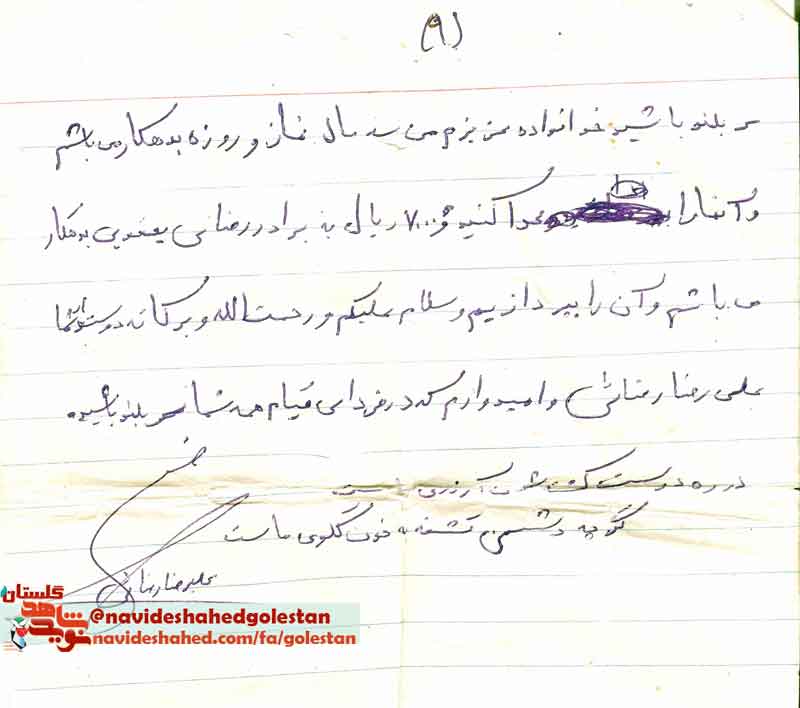 (۹)
سر بلند باشید خانواده عزیزم من سه سال نماز و روزه بدهکار می باشم
و آنها را ادا کنید و ۷۰۰۰ ریال به برادر رضائی یعقوبی بدهکار
می باشم و آن را بپردازیم وسلام علیکم و رحمت الله و برکاته دوستدار شما
علی رضا رضائی و امیدوارم که در فردای قیام همه شما سر بلند باشید.
در ره دوست کشته شدن آرزوی ماست
گر چه دشمن تشنه به خون گلوی ماست
علیرضا رضائی
نوید شاهد گلستان
@navideshahedgolestan
navideshahed.com/fa/golestan